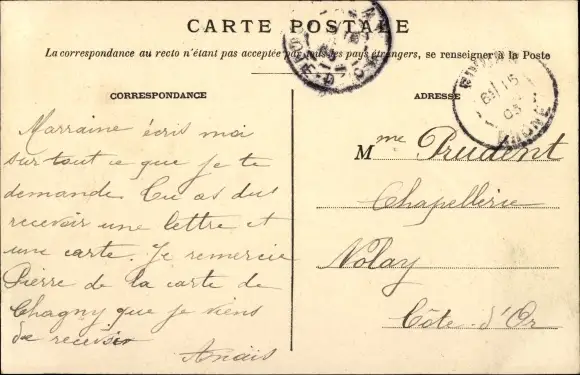 CARTE POSTALE
La correspondance au recto n'étant pas acceptée par tous les pays étrangers, se renseigner à la Poste
CORRESPONDANCE
Marraine écris moi
surtout ce que je te
demande. Tu as dus
recevoir une lettre et
une carte. Je remercie
Pierre de la carte de
Chagny que je viens
de recevoir
Anaïs
ADRESSE
Mme Prudent
Chapellerie
Nolay
Côte-d'Or
RHONE